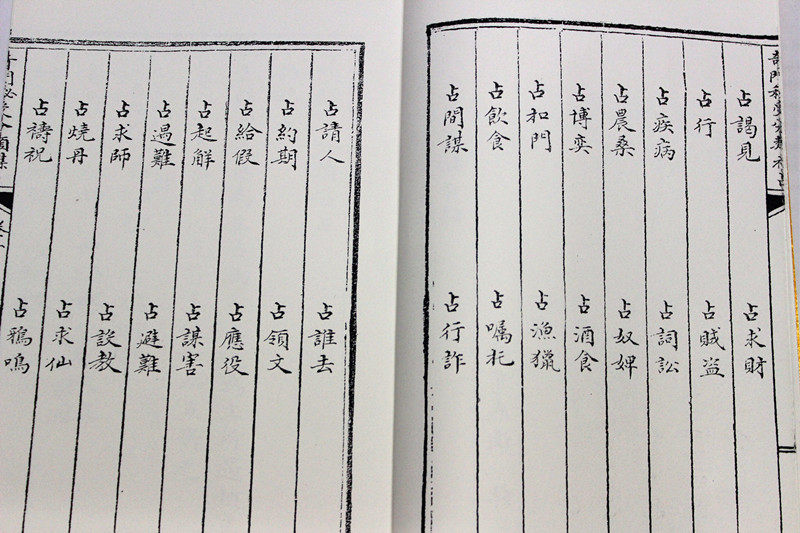 占謁見 占求財
占行 占賊盗
占疾病 占詞訟
占農桑 占奴婢
占博奕 占酒食
占和門 占漁獵
占飲食 占囑托
占間謀 占行詐
占請人 占誰去
占約期 占領文
占給假 占應役
占起解 占謀害
占過難 占避難
占求師 占設教
占燒丹 占求仙
占禱祝 占鴉鳴